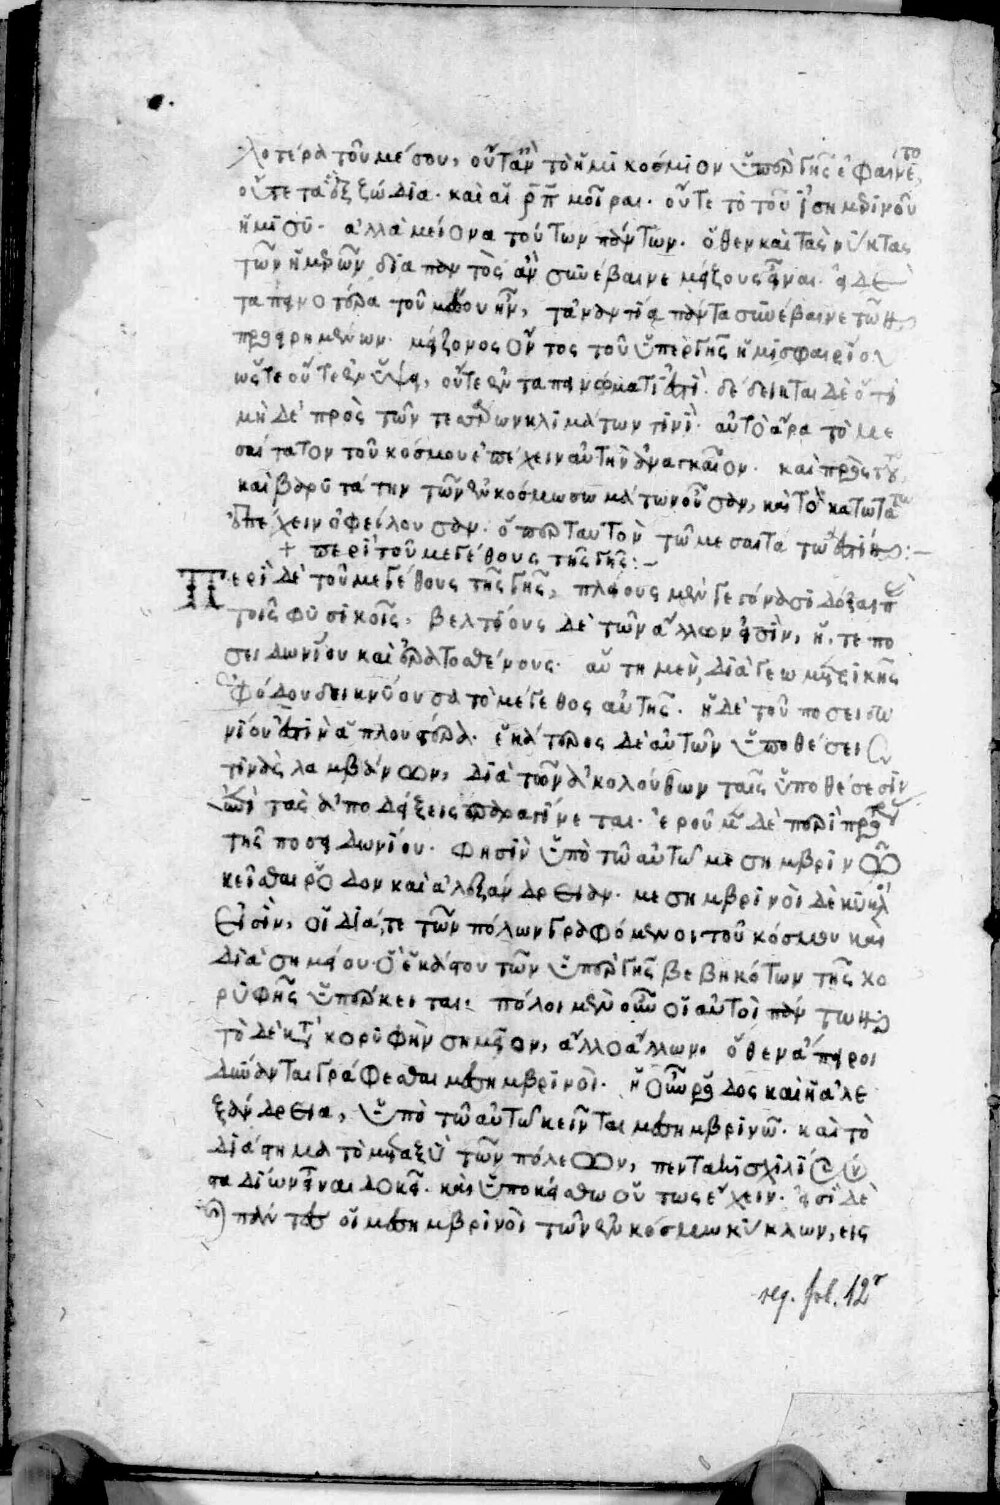 λοτέρα τοῦ μέσου, οὔτ' ἂν τὸ ἡμικόσμιον ὑπὲρ γῆς ἐφαίνετο,
οὔτε τὰ ϛ ζώδια· καὶ αἱ ρπ μοῖραι· οὔτε τὸ τοῦ ἰσημερινοῦ
ἥμισυ· ἀλλὰ μείονα τούτων πάντων· ὅθεν καὶ τὰς νύκτας
τῶν ἡμερῶν διὰ παντὸς ἂν συνέβαινε μείζους εἶναι· εἰ δὲ
ταπεινοτέρα τοῦ μέσου ἦν, τἀναντία πάντα συνέβαινε τῶν
προειρημένων· μείζονος ὄντος τοῦ ὑπὲρ γῆς ἡμισφαιρίου
ὥστε οὔτε ἐν ὕψει, οὔτε ἐν ταπεινώματί ἐστι· δέδεικται δὲ ὅτι
μὴ δὲ πρὸς τῶν τεσσάρων κλιμάτων τινὶ· αὐτὸ ἄρα τὸ με
σαίτατον τοῦ κόσμου ἐπέχειν αὐτὴν ἀναγκαῖον· καὶ πρὸς τού
καὶ βαρυτάτην τῶν ἐν κόσμω σωμάτων οὖσαν, καὶ τὸ κατωτάτω
ἐπέχειν ὀφείλουσαν· ὅπερ ταυτὸν τῷ μεσαιτάτω ἐστίν:–
+ περὶ τοῦ μεγέθους τῆς γῆς:–
Περὶ δὲ τοῦ μεγέθους τῆς γῆς, πλείους μὲν γεγόνασι δόξαι π
τοῖς φυσικοῖς· βελτίους δὲ τῶν ἄλλων εἰσὶν, ἥ, τε πο
σειδωνίου καὶ ἐρατοσθένους· αὕτη μὲν, διὰ γεωμετρικῆς
ἐφόδου δεικνύουσα τὸ μέγεθος αὐτῆς· ἡ δὲ τοῦ ποσειδω
νίου ἐστὶν ἁπλουστέρα· ἑκάτερος δὲ αὐτῶν ὑποθέσεις
τινὰς λαμβάνων, διὰ τῶν ἀκολούθων ταῖς ὑποθέσεσιν
ἐπὶ τὰς ἀποδείξεις παραγίνεται· ἐροῦμεν δὲ περὶ πρότερ
τῆς ποσειδωνίου· φησὶν ὑπὸ τῶ αὐτῶ μεσημβρινῶ
κεῖσθαι ῥόδον καὶ ἀλεξάνδρειαν· μεσημβρινοὶ δὲ κύκλοι
εἰσὶν, οἱ διά, τε τῶν πόλων γραφόμενοι τοῦ κόσμου καὶ
διὰ σημείου ὃ ἑκάστου τῶν ὑπὲρ γῆς βεβηκότων τῆς κο
ρυφῆς ὑπέρκειται· πόλοι μὲν οὖν οἱ αὐτοὶ πάντων
τὸ δὲ κατὰ κορυφὴν σημεῖον, ἄλλο ἄλλων· ὅθεν ἄπειροι
δύνανται γράφεσθαι μεσημβρινοί· ἡ οὖν ῥόδος καὶ ἡ ἀλε
ξάνδρεια, ὑπὸ τῶ αὐτῶ κεῖνται μεσημβρινῶ· καὶ τὸ
διάστημα τὸ μεταξὺ τῶν πόλεων, πεντακισχιλίων
σταδίων εἶναι δοκεῖ· καὶ ὑποκείσθω οὕτως ἔχειν· εἰσὶ δὲ
καὶ πάντες οἱ μεσημβρινοὶ τῶν ἐν κόσμω κύκλων, εἰς
seq. fol. 12r